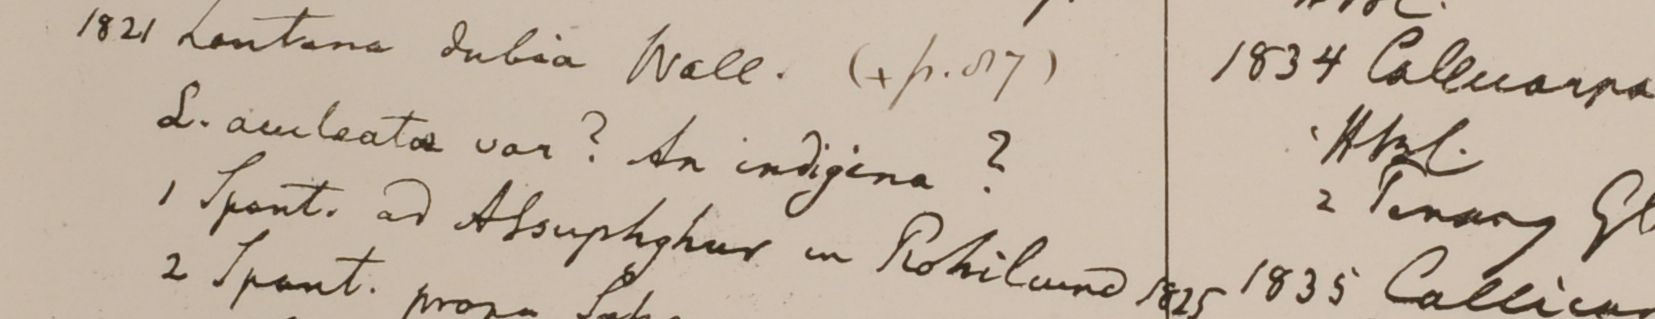 1821 Lantana dubia Wall. (+ p. 87)
L. aculeata var? An indigena?
1 Spont. ad Afsuphghur in Rohilcund 1825
2 Spont. prope
1834 Callicarpa
Hbl.
2 Penang
1835 Callicar